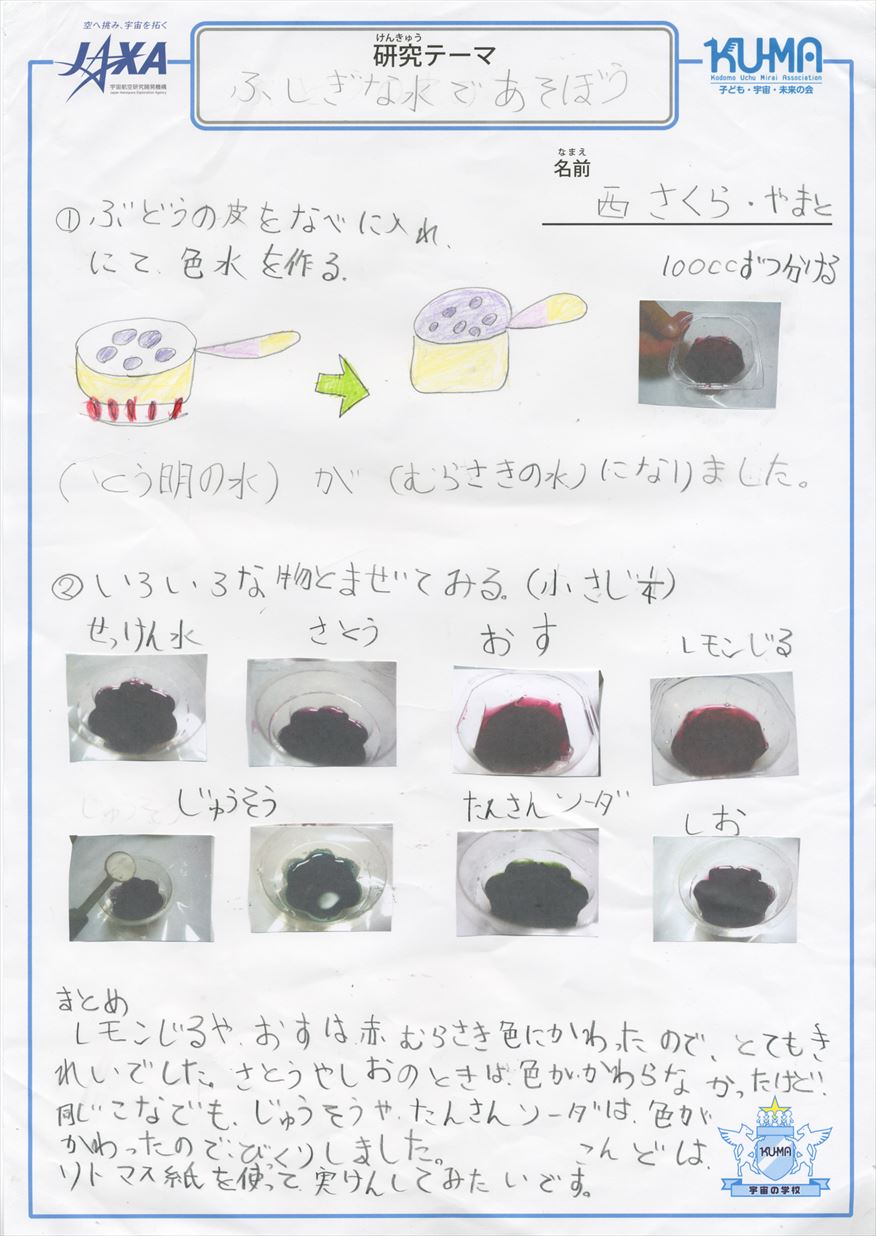 空へ挑み、宇宙を拓く
JAXA
宇宙航空研究開発機構
Japan Aerospace Exploration Agency
けんきゅう
研究テーマ
ふしぎな水であそぼう
KU-MA
Kodomo Uchu Mirai Association
子ども・宇宙・未来の会
なまえ
名前
西 さくら・やまと
①ぶどうの皮をなべに入れ、
にて、色水を作る。
100ccずつ分ける
(とう明の水)が(むらさきの水)になりました。
②いろいろな物とまぜてみる。(小さじ1/4)
せっけん水 さとう おす レモンじる
じゅうそう たんさんソーダ しお
まとめ
レモンじるや、おすは、赤むらさき色にかわったので、とてもき
れいでした。さとうやしおのときは、色がかわらなかったけど、
同じこなでも、じゅうそうや、たんさんソーダは、色が
かわったので、びっくりしました。こんどは、
リトマス紙を使って、実けんしてみたいです。
KU-MA
宇宙の学校